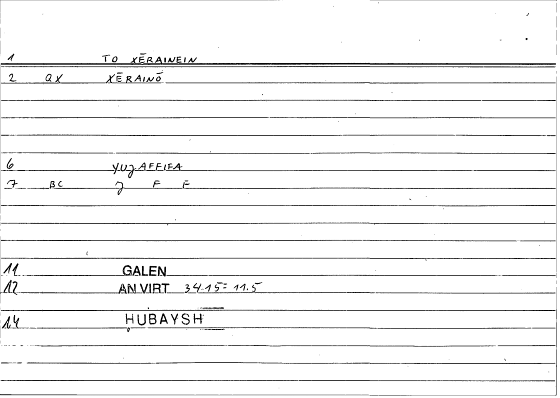 1 TO XĒRAINEIN
2 QX XĒRAINŌ
6 YUJAFFIFA
7 BC J F F
11 GALEN
12 AN VIRT 34.15 = 11.5
14 HUBAYSH